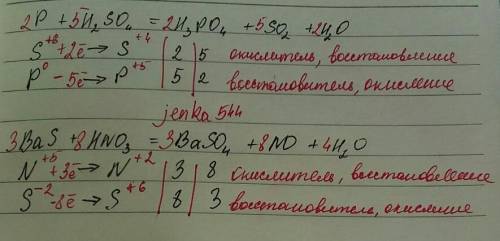 2P + 5H₂SO₄ = 2H₃PO₄ + 5SO₂ + 2H₂O
S⁺⁶ + 2ē → S⁺⁴ | 2 | 5 окислитель, восстановление
P⁰ - 5ē → P⁺⁵ | 5 | 2 восстановитель, окисление
jenka 544
3BaS + 8HNO₃ = 3BaSO₄ + 8NO + 4H₂O
N⁺⁵ + 3ē → N⁺² | 3 | 8 окислитель, восстановление
S⁻² - 8ē → S⁺⁶ | 8 | 3 восстановитель, окисление